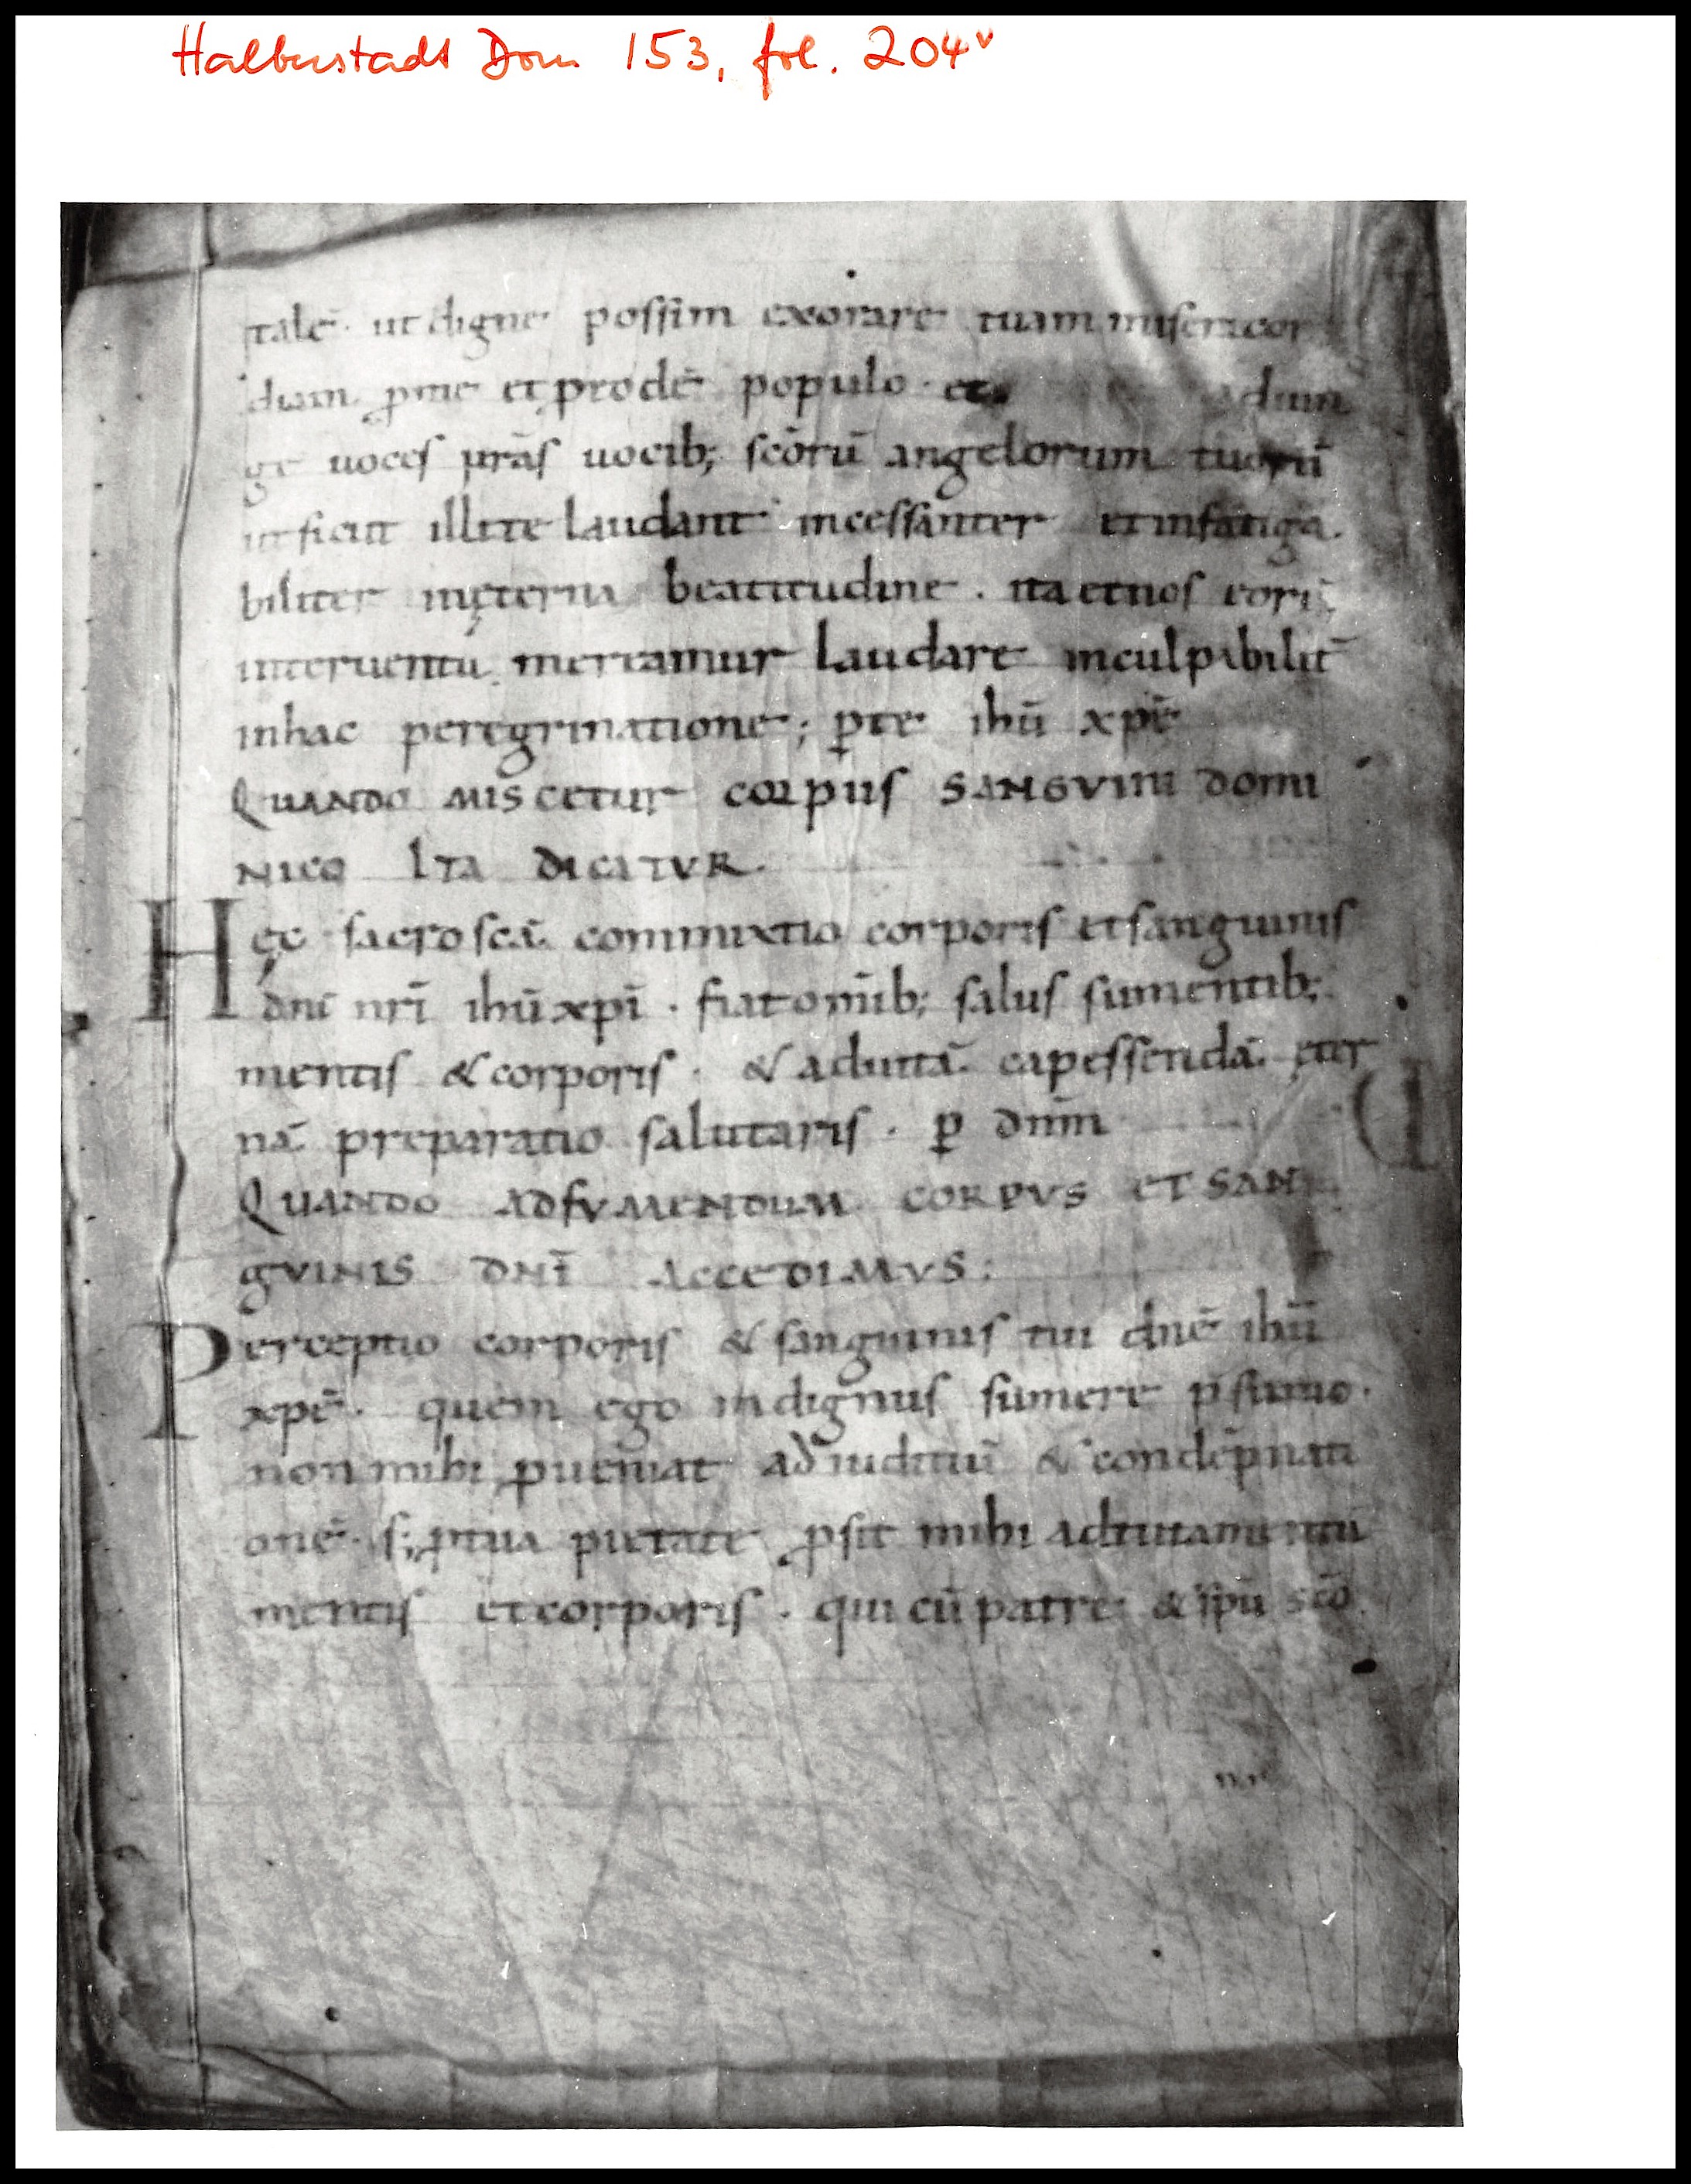 Halberstadt Dom 153, fol. 204v
talē · ut digne possim exorare tuam misericor
diam ꝓme et prodē populo · et adiun
ge uoces nrās uocib; scōrū angelorum tuorū
ut sicut illi te laudant incessanter et infatiga
biliter in ęterna beatitudine . ita et nos eorū
interuentu meriamur laudare inculpabilit̄
in hac peregrinatione ; ꝑ te ihū xpē
QUANDO MISCETUR CORPUS SANGVINI DOMI
NICO ITA DICATVR
Hęc sacro scā commixtio corporis et sanguinis
dnī nrī ihū xpī · fiat omīb; salus sumentib;
mentis & corporis · & ad uitā capessendā ęter
nā preparatio salutaris · ꝑ dnm̄
QUANDO AD SVMENDUM CORPVS ET SAN
GVINIS DNĪ ACCEDIMVS :
Perceptio corporis & sanguinis tui dnē ihū
xpē · quem ego indignus sumere p̄sumo ·
non mihi ꝓueniat ad iuditiū & condēpnati
onē · s; ꝑ tua pietate ꝓsit mihi ad tutamentū
mentis et corporis · qui cū patre & sp̄u scō